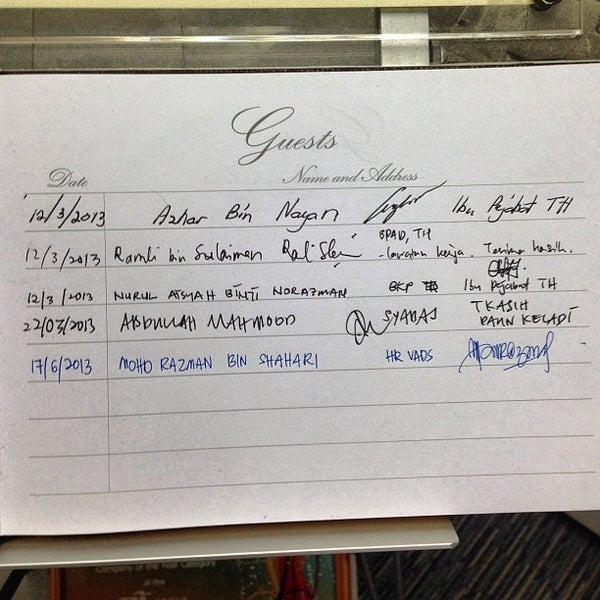 Guests
Date Name and Address
12/3/2013 Azhar Bin Nayan Ibu Pejabat TH
BPAD, TH
12/3/2013 Ramli bin Sulaiman - lawatan kerja. Terima kasih.
12/3/2013 NURUL AISYAH BINTI NORAZMAN BKP Ibu Pejabat TH
TKASIH
22/03/2013 ABDULLAH MAHMOOD SYABAS
DAUN KELADI
17/6/2013 MOHD RAZMAN BIN SHAHARI HR VADS
Company of the Year Category
at the